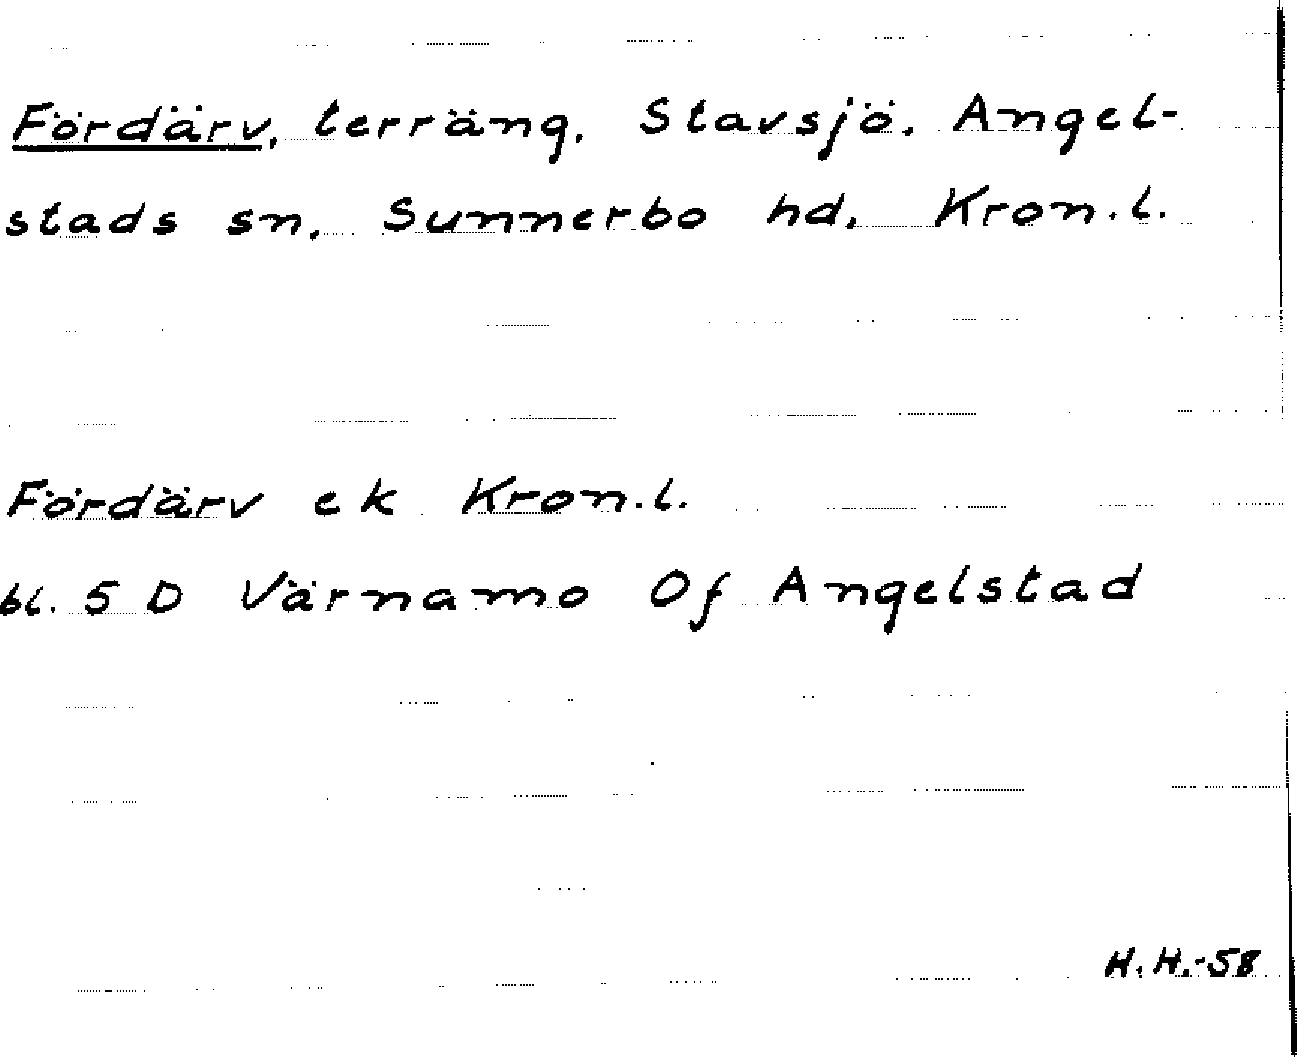 Fördärv, terräng, Stavsjö, Angel-
stads sn, Sunnerbo hd, Kron.l.
Fördärv ek Kron.l.
bl. 5 D Värnamo Of Angelstad
H.H.-58